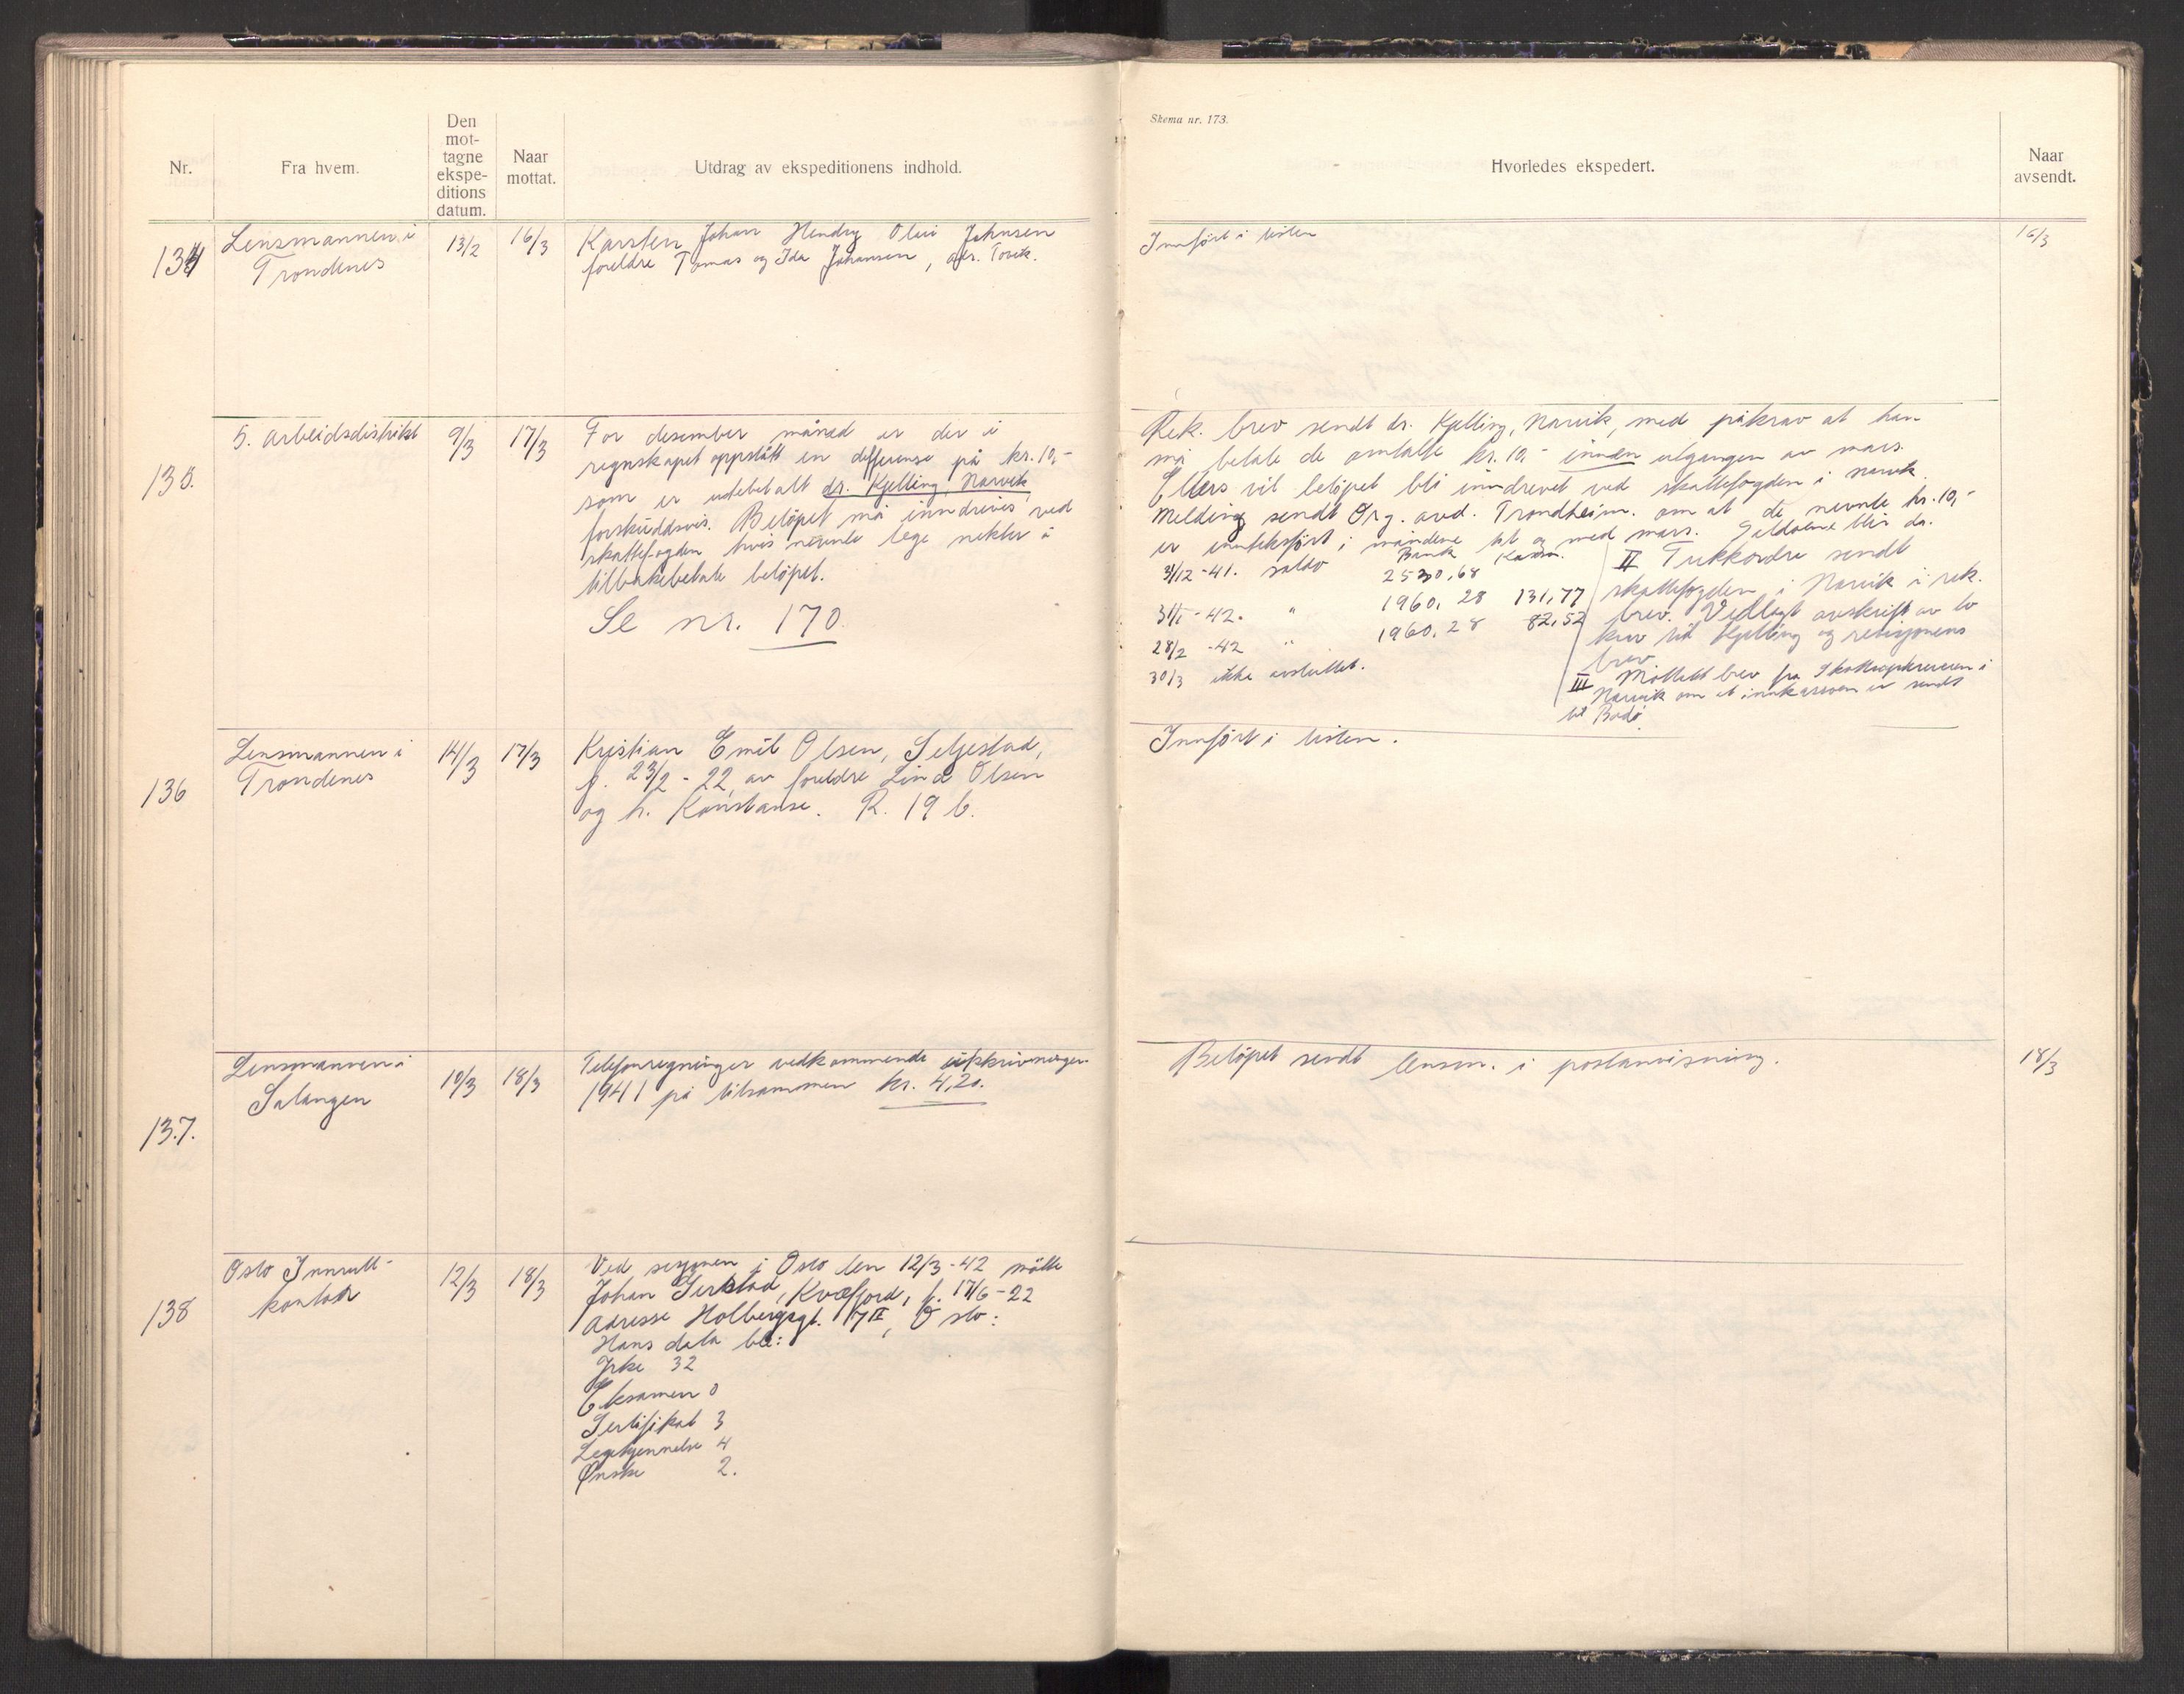 Nr.
Fra hvem.
Den
mot-
tagne
ekspe-
ditions
datum.
Naar
mottat.
Utdrag av ekspeditionens indhold.
Skema nr. 173.
Hvorledes ekspedert.
Naar
avsendt.
134
Lensmannen i
Trondenes
13/2
16/3
Karsten Johan Hendry Olui Johnsen
foreldre Tomas og Ida Johansen, adr. Tovik.
Innført i listen
16/3
135.
5. arbeidsdistrikt
9/3
17/3
For desember månad er der i
regnskapet oppstått en differense på kr. 10,-
som er utbetalt dr. Kjelling, Narvik
forskuddsvis. Beløpet må inndrives ved
skattefogden hvis nevnte lege nekter å
tilbakebetale beløpet.
Se nr. 170.
Rek. brev sendt dr. Kjelling, Narvik, med påkrav at han
må betale de omtalte kr. 10,- innen utgangen av mars.
Ellers vil beløpet bli inndrevet ved skattefogden i Narvik
Melding sendt Org. avd. Trondheim. om at de nevnte kr. 10,-
er inntektsført i månedene til og med mars. Saldoene blir da.
Bank Kassa.
31/12 - 41. saldo 2530,68
31/1 - 42. " 1960,28 131,77
28/2 - 42 " 1960,28 82,52
30/3 ikke avsluttet.
II Trekkordre sendt
skattefogden i Narvik i rek.
brev. Vedlagt avskrift av to
krav til Kjelling og revisjonens
brev
III Mottatt brev fra Skatteoppkreveren i
Narvik om at innkassoen er sendt
til Bodø.
136
Lensmannen i
Trondenes
14/3
17/3
Kristian Emil Olsen, Seljestad,
f. 23/2 - 22 av foreldre Lind Olsen
og h. Konstanse. R. 19 b.
Innført i listen.
137.
Lensmannen i
Salangen
10/3
18/3
Telefonregninger vedkommende utskrivningen
1941 på tilsammen kr. 4,20.
Beløpet sendt lensm. i postanvisning.
18/3
138
Oslo Innrull-
kontor
12/3
18/3
Ved sesjonen i Oslo den 12/3 - 42 møtte
Johan Serkstad, Kvæfjord, f. 17/6 - 22
adresse Holbergsgt. 17 II, Oslo:
Hans data ble:
Yrke 32
Eksamen 0
Sertifikat 3
Legekjennelse 4
Ønske 2.